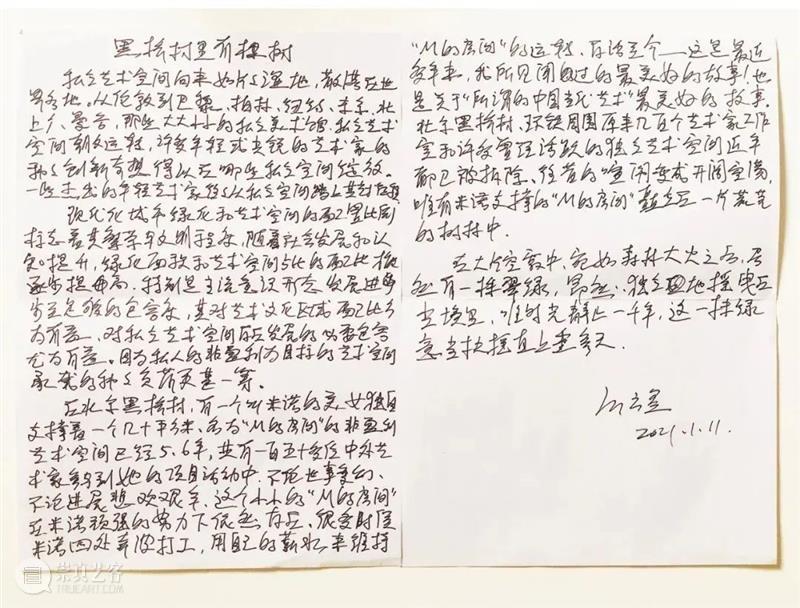 黑桥村里有棵树
私立艺术空间向来如片片湿地，散落在世
界各地。从伦敦到巴黎、柏林、纽约、东京、北
上广、曼谷，那些大大小小的私立美术馆、私立艺术
空间朝夕运转，许多年轻或尖锐的艺术家的
种种创新奇想得以在哪些私立空间绽放。
一些杰出的年轻艺术家往往从私立空间踏上
现代化城市绿化和艺术空间的配置比同
样标志着其繁荣与文明程度，随着社会发展和认
知提升，绿化面积和艺术空间占比的配比
逐步提高。特别是主流意识形态发展进
步至足够的包容度，其对艺术文化区域配比
为有益，对私立艺术空间存在发展的 包容
尤为有益。因为私人的非盈利为目标的艺术空间
承载的种种负荷更甚一筹。
在北京黑桥村，有一个叫米诺的美女独自
支撑着一个几十平方米、名为“M的房间”的非盈利
艺术空间已经5、6年，共有一百五十多位中外艺
术家参与到她的项目活动中，不论世事变幻、
不论进展悲欢艰辛，这个小小的“M的房间”
在米诺顽强的努力下依然存在，很多时候
米诺四处奔波打工，用自己的薪水来维持
“M的房间”的运转，存活至今——这是最近
多年来，我所见闻过的最美好的故事！也
是关于“所谓的中国当代艺术”最美好的故事。
北京黑桥村、环铁周围原来几百个艺术家工作
室和许多曾经活跃的独立艺术空间近年
都已被拆除，往昔的喧闹变成开阔空荡，
唯有米诺支撑的“M的房间”矗立在一片荒芜
的树林中。
在大片空寂中，宛如森林大火之后，居
然有一株翠绿，昂然、独立地摇曳在
尘境里，唯时光静止一千年，这一抹绿
意当扶摇直上重霄天。
2021.1.11.
崇真艺客
TRUEART.COM